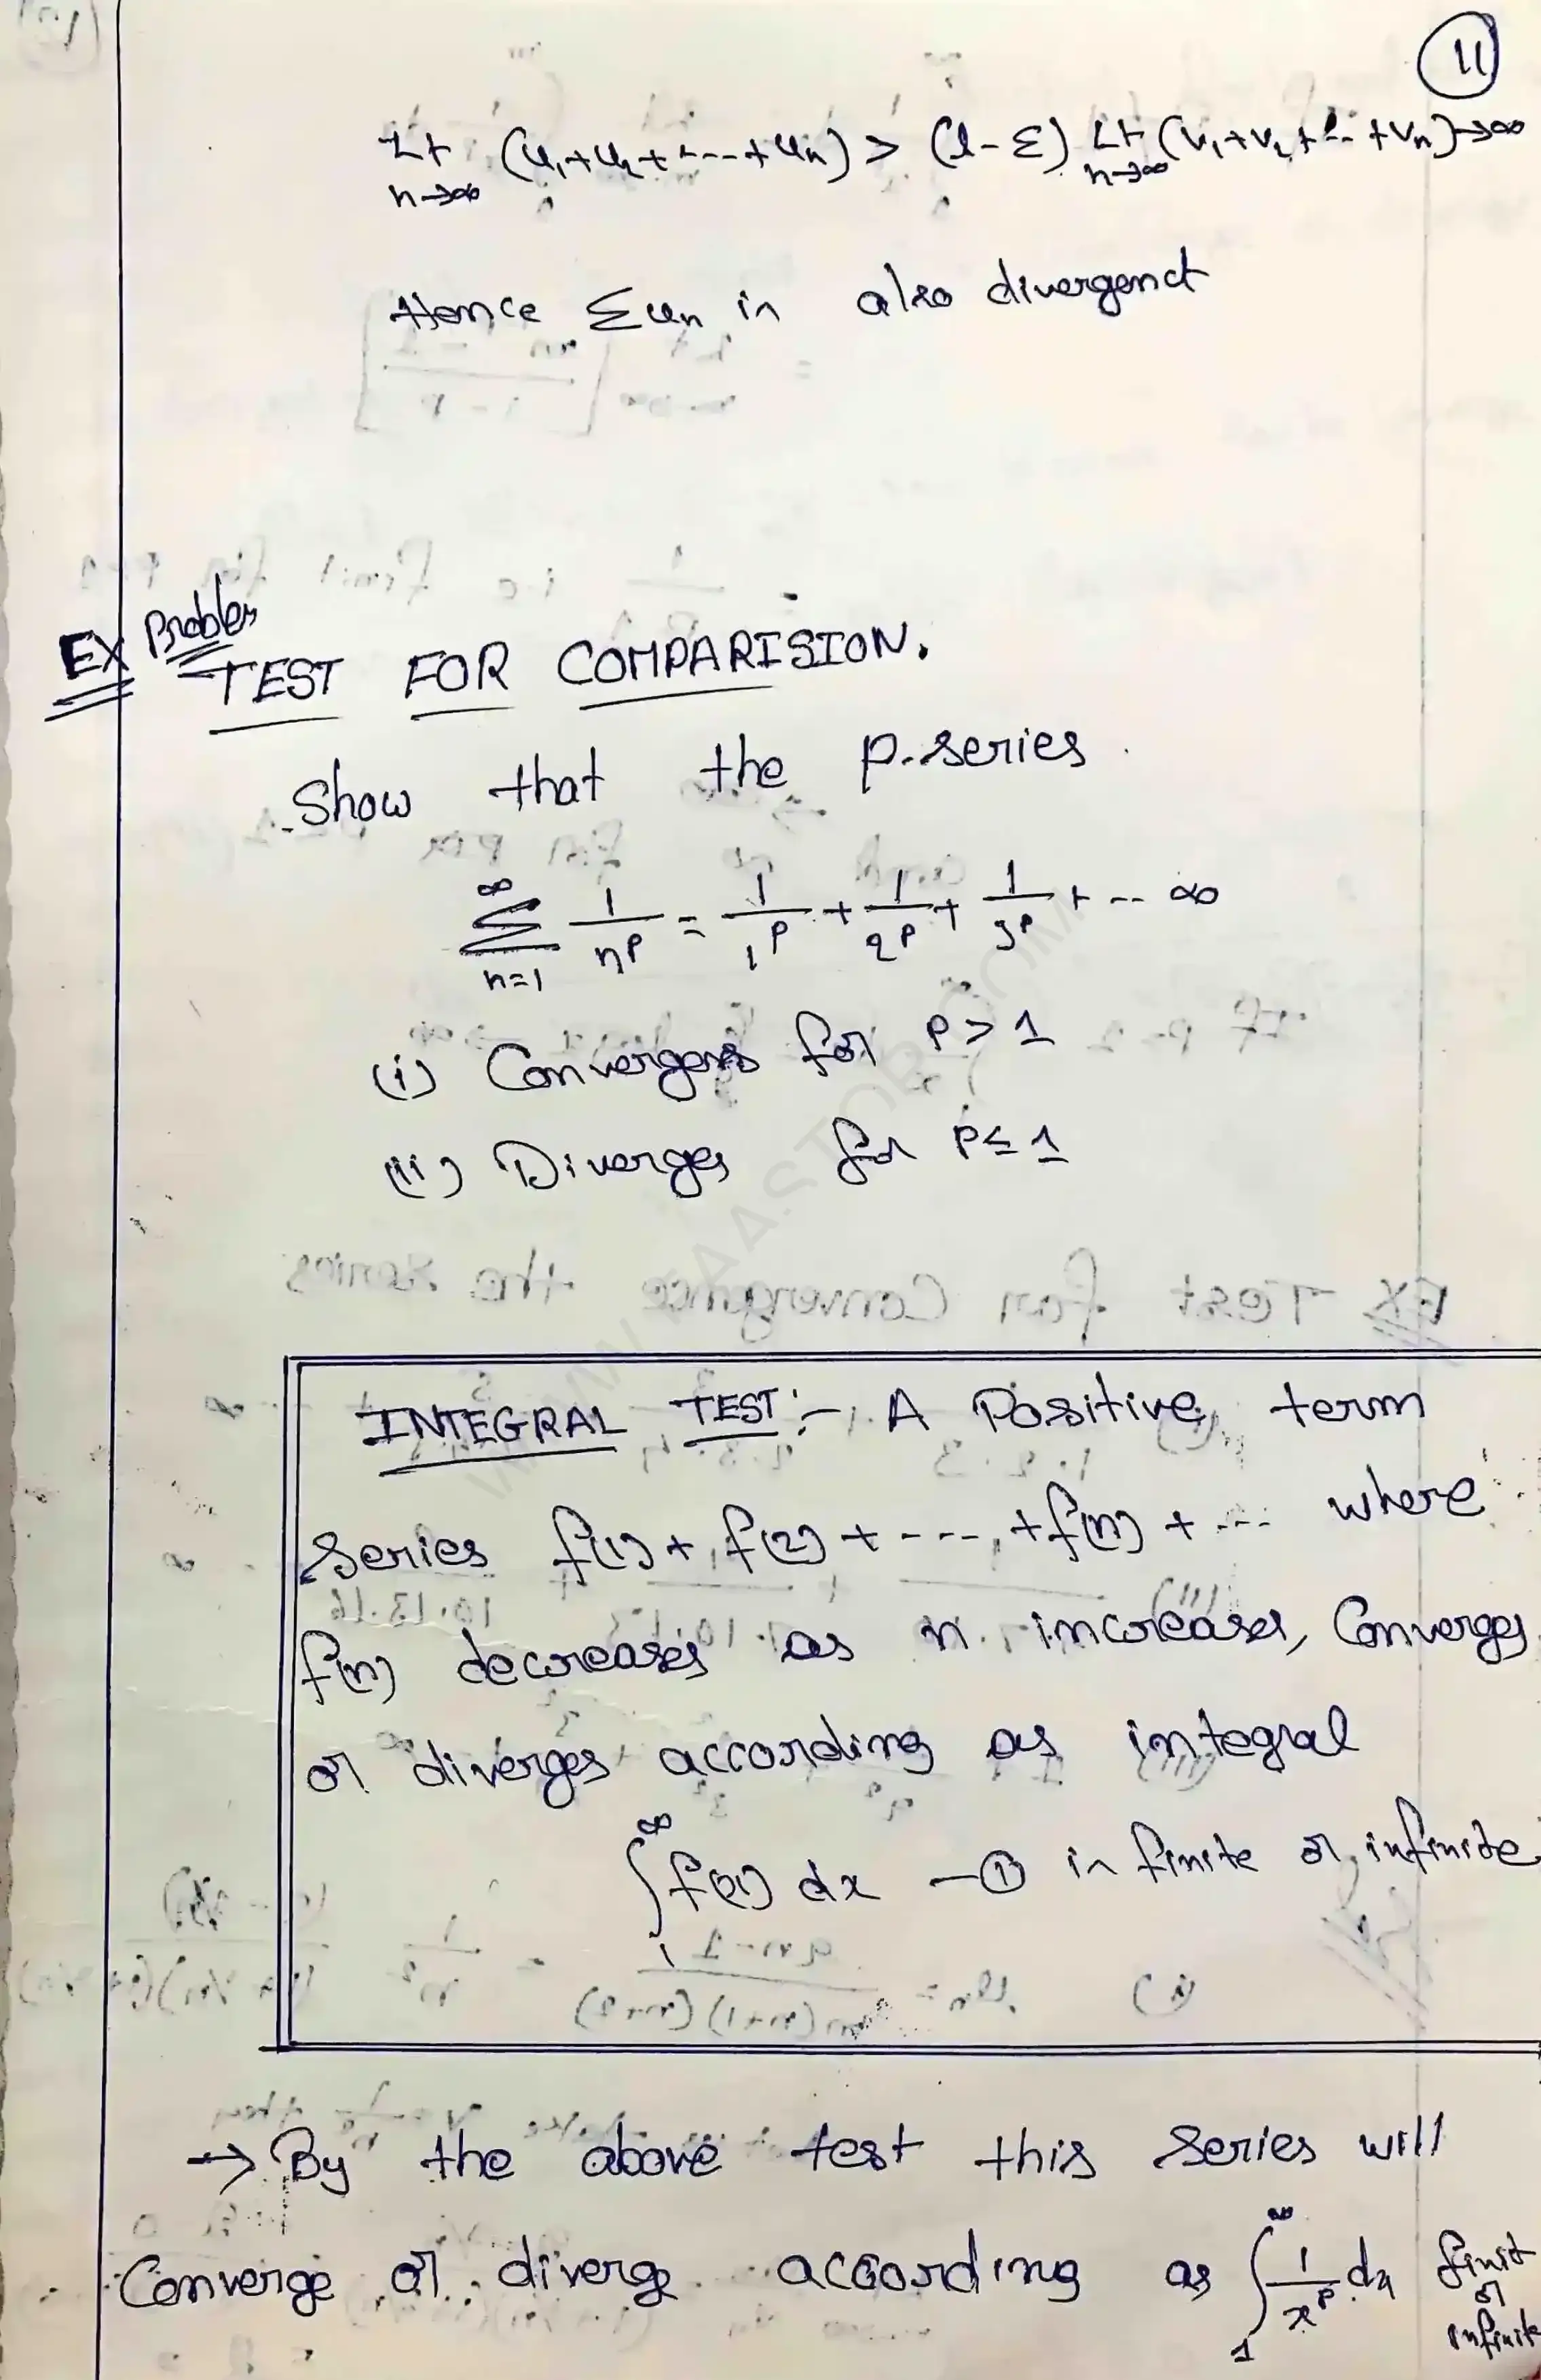 11
Lt n→∞ (u₁+u₂+----+uₙ) > (l-ε) Lt n→∞ (v₁+v₂+--+vₙ)→∞
Hence Σuₙ is also divergenct
EX Problem
TEST FOR COMPARISION.
Show that the p-series
∞ Σ n=1 1/n^p = 1/1^p + 1/2^p + 1/3^p + -- ∞
(i) Converges for p > 1
(ii) Diverges for p ≤ 1
INTEGRAL TEST :- A Positive term
series f(1) + f(2) + ---- + f(n) + --- where
f(n) decreases as n increases, Converges
or diverges according as integral
∫₁^∞ f(x) dx —① is finite or infinite
→ By the above test this series will
Converge or diverge according as ∫₁^∞ 1/x^p dx finit or infinite
WWW.FAASTOP.COM